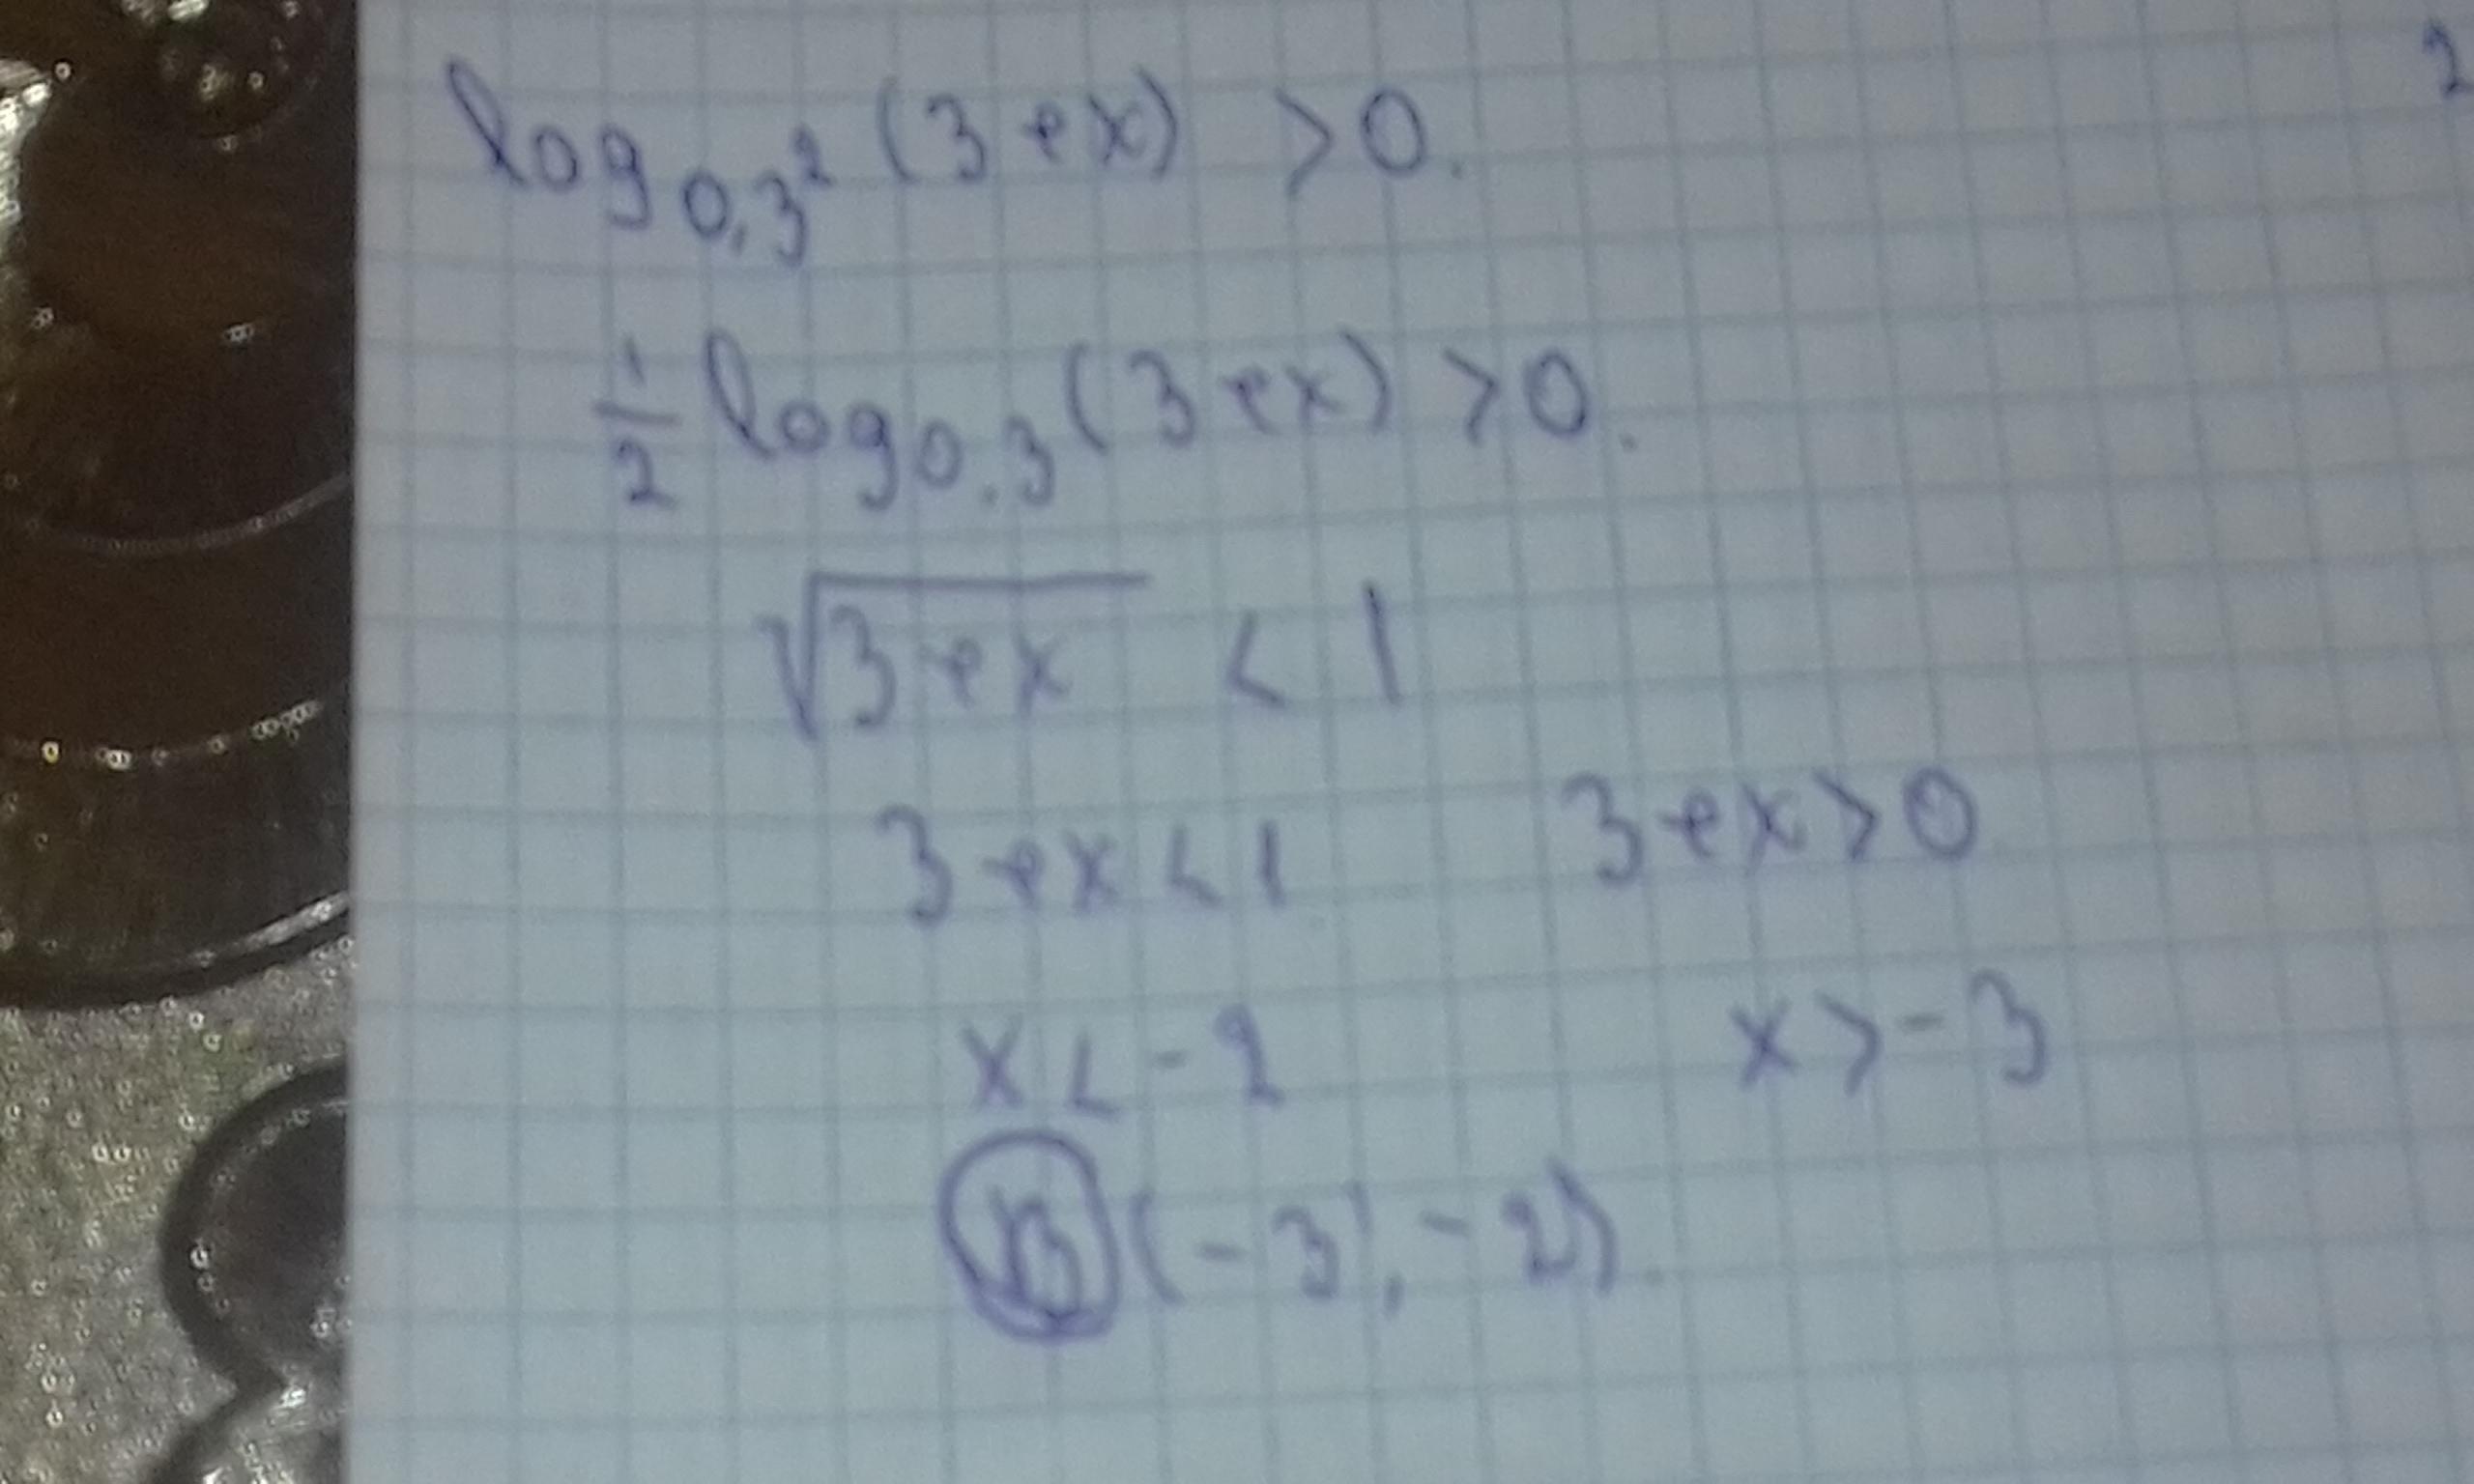 2
log₀,₃² (3+x) > 0.
1/2 log₀.₃ (3+x) > 0.
√(3+x) < 1
3+x < 1 3+x > 0
x < -2 x > -3
B (-3; -2).